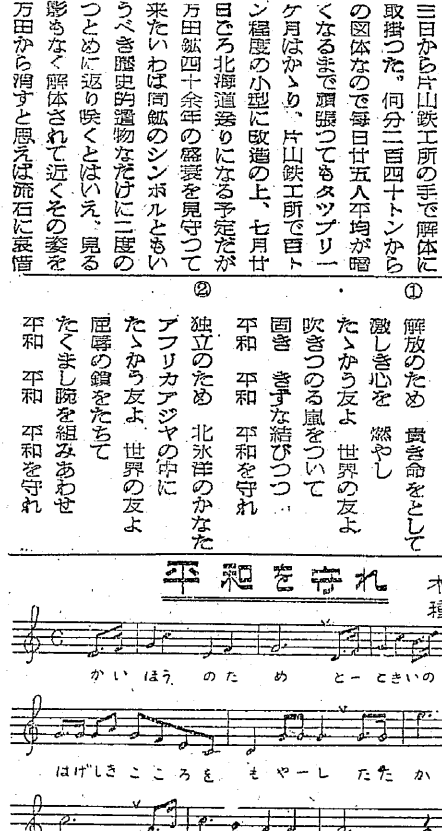 三日から片山鉄工所の手で解体に
取掛つた。何分二百四十トンから
の図体なので毎日廿五人平均が暗
くなるまで頑張つてもタツプリ一
ケ月はかゝり、片山鉄工所で百ト
ン程度の小型に改造の上、七月廿
日ごろ北海道送りになる予定だが
万田鉱四十余年の盛衰を見守つて
来たいわば同鉱のシンボルともい
うべき歴史的遺物なだけに二度の
つとめに返り咲くとはいえ、見る
影もなく解体されて近くその姿を
万田から消すと思えば流石に哀惜
①
解放のため 貴き命をとして
激しき心を 燃やし
たゝかう友よ 世界の友よ
吹きつのる嵐をついて
固き きずな結びつつ
平和 平和 平和を守れ
②
独立のため 北氷洋のかなた
アフリカアジヤの中に
たゝかう友よ 世界の友よ
屈辱の鎖をたちて
たくまし腕を組みあわせ
平和 平和 平和を守れ
平和を守れ
かい ほう のた め と一 ときいの
はげしき こころを もや一し たたか